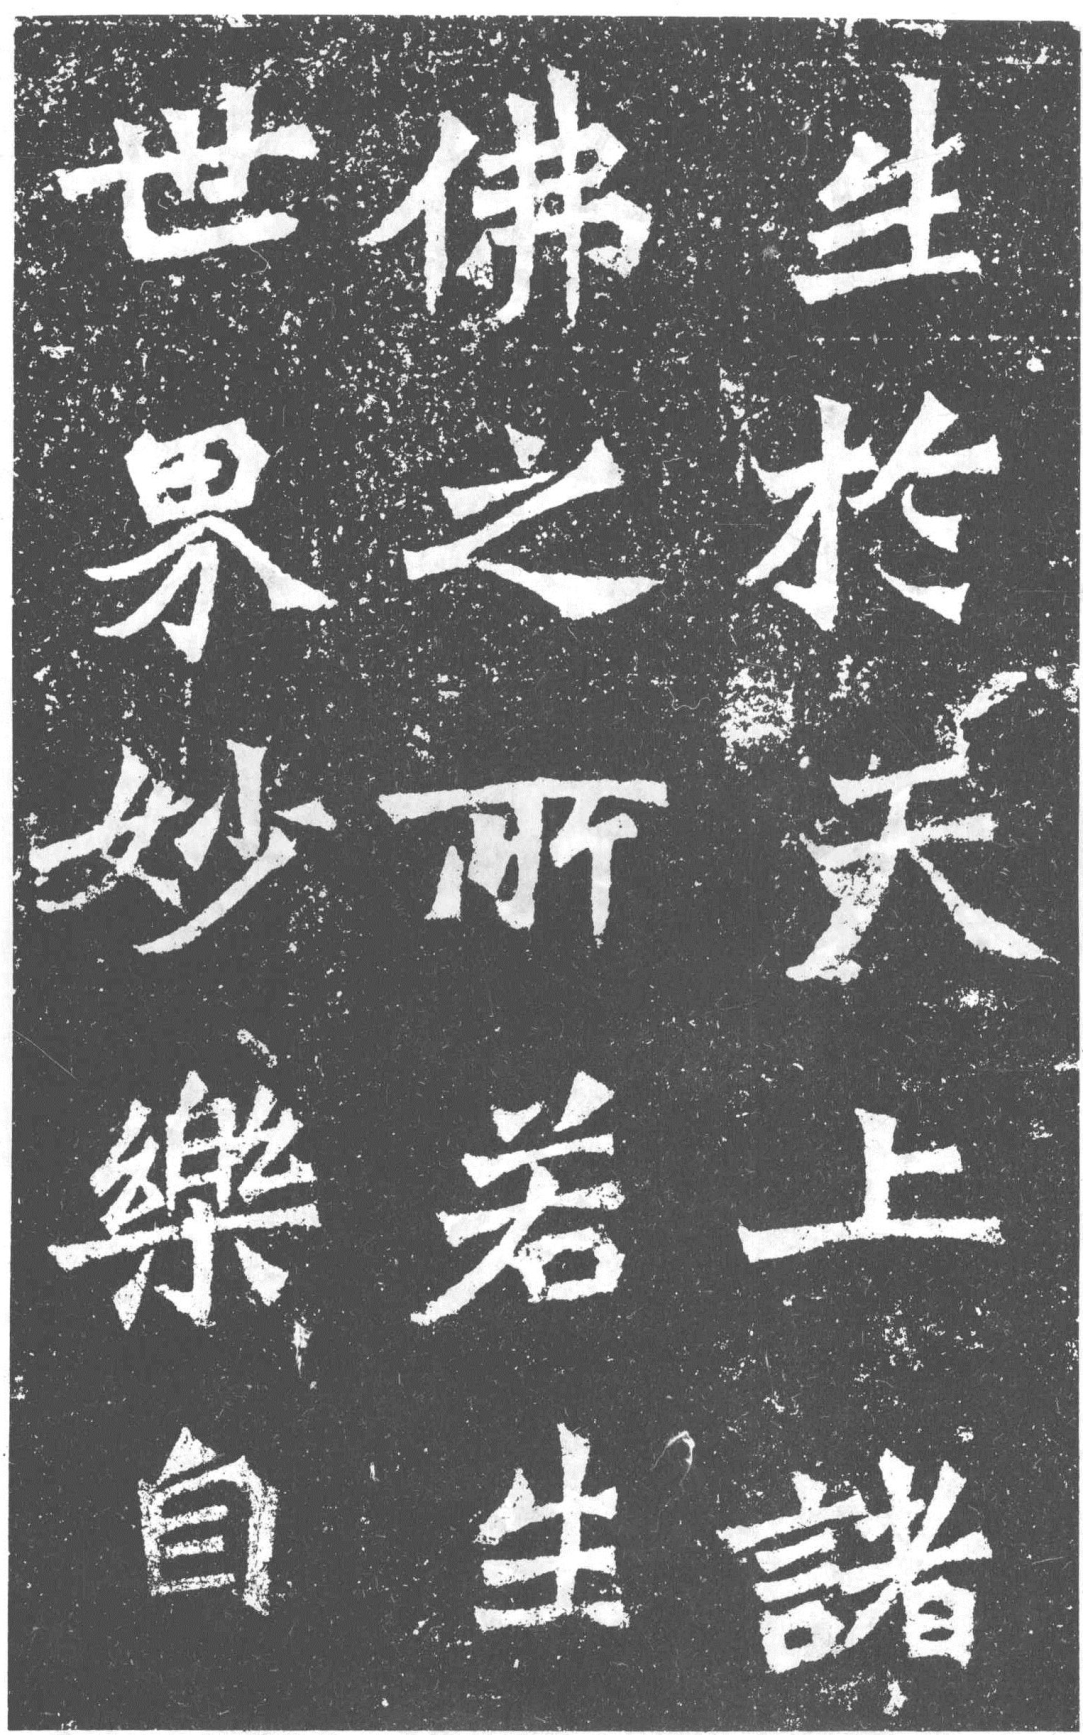 生於天上諸
佛之所若生
世界妙樂自